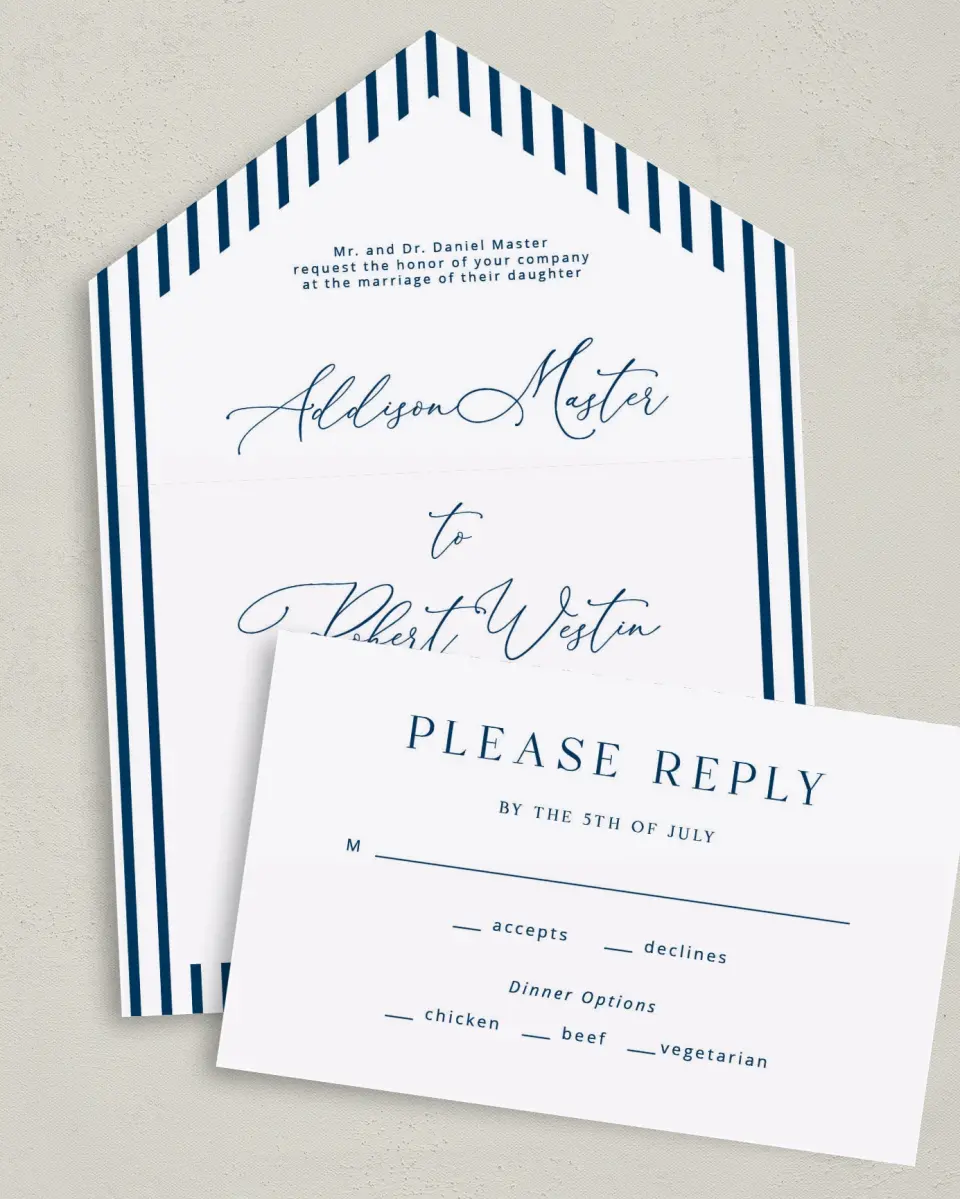 Mr. and Dr. Daniel Master
request the honor of your company
at the marriage of their daughter
Addison Master
to
Robert Westin
PLEASE REPLY
BY THE 5TH OF JULY
M
accepts declines
Dinner Options
chicken beef vegetarian